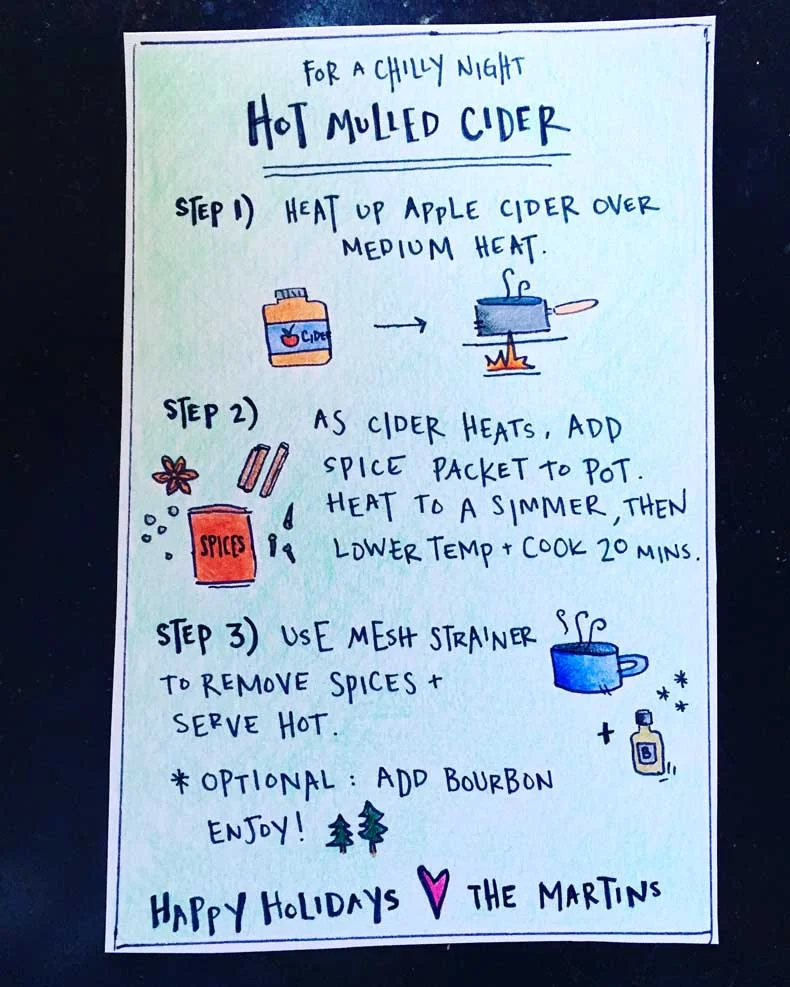 FOR A CHILLY NIGHT
HOT MULLED CIDER
STEP 1) HEAT UP APPLE CIDER OVER
MEDIUM HEAT.
CIDER
STEP 2) AS CIDER HEATS, ADD
SPICE PACKET TO POT.
HEAT TO A SIMMER, THEN
LOWER TEMP + COOK 20 MINS.
SPICES
STEP 3) USE MESH STRAINER
TO REMOVE SPICES +
SERVE HOT.
+
B
* OPTIONAL: ADD BOURBON
ENJOY!
HAPPY HOLIDAYS ♥ THE MARTINS